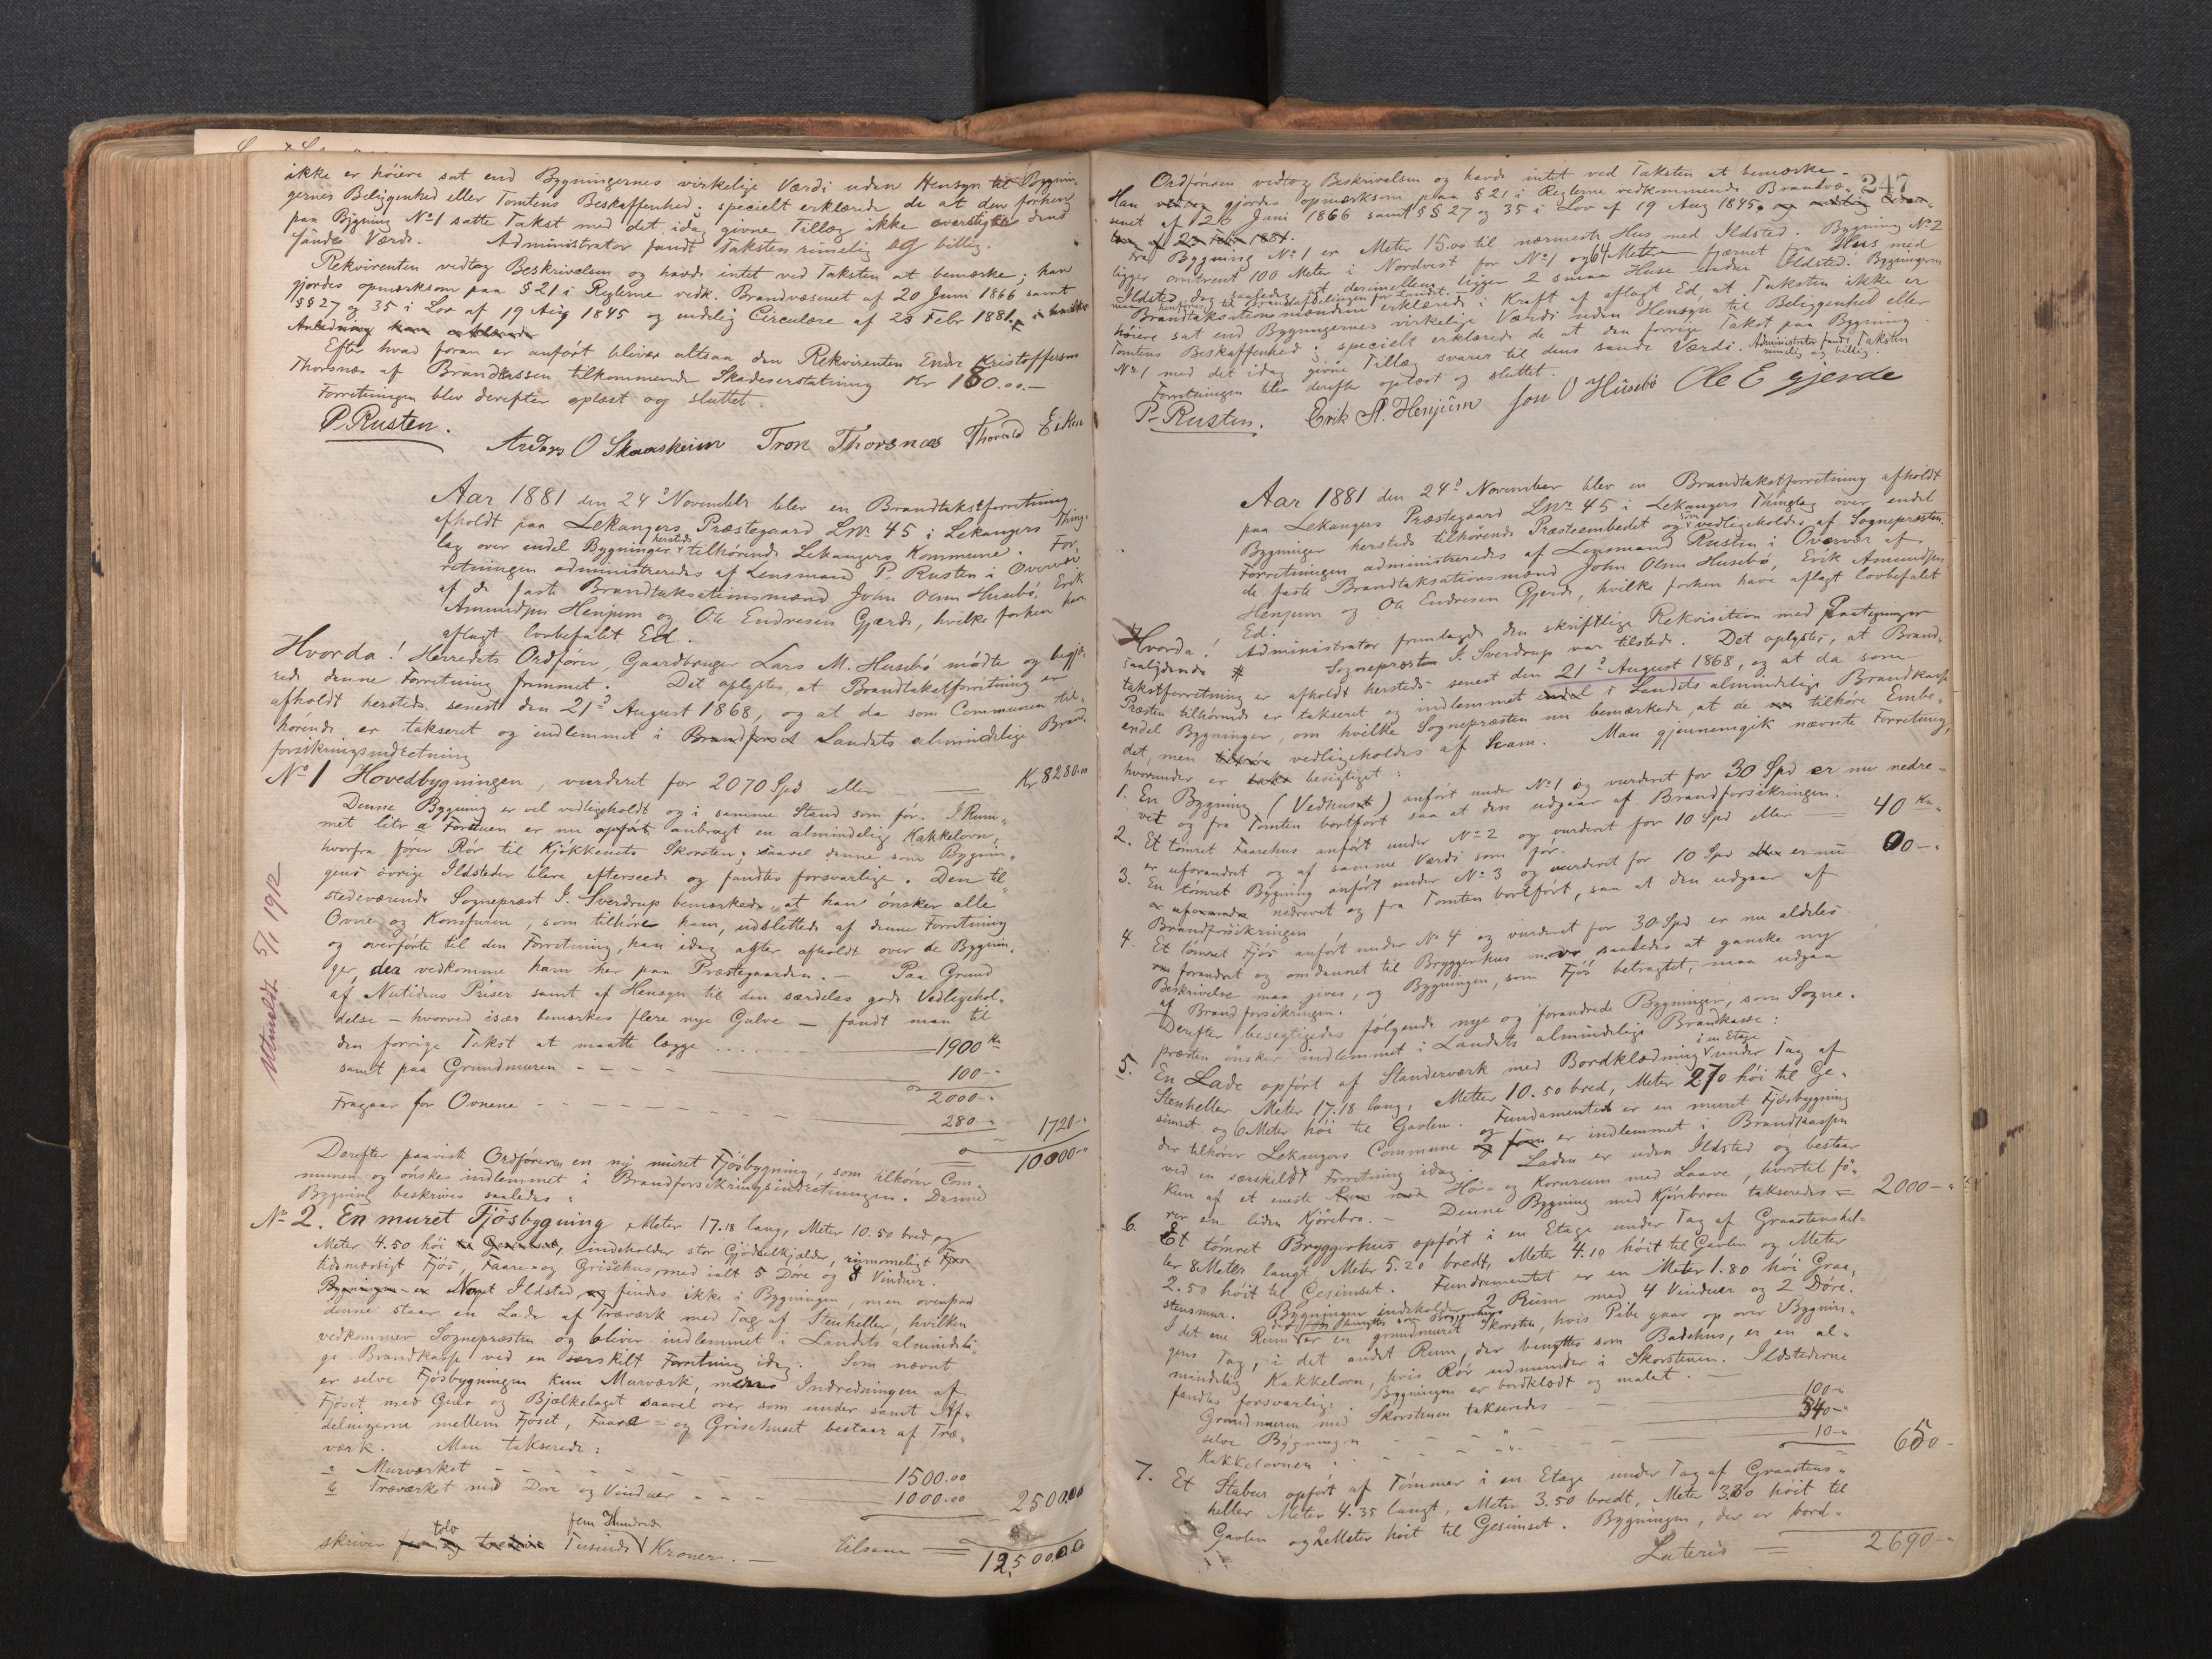 ikke er höiere sat end Bygningernes virkelige Værdi uden Hensyn til Bygnin-
gernes Beliggenhed eller Tomtens Beskaffenhed; specielt erklærede de at den forhen
paa Bygning No 1 satte Takst med det idag givne Tillæg ikke overstiger dens
sande Værdi. Administrator fandt Taksten rimelig og billig.
Rekvirenten vedtog Beskrivelsen og havde intet ved Taksten at bemærke; han
gjordes opmærksom paa § 21 i Reglerne vedk. Brandvæsenet af 20 Juni 1866 samt
§§ 27 og 35 i Lov af 19 Aug 1845 og endelig Circulære af 23 Febr 1881.
Anledning han erklærede
Efter hvad foran er anført bliver altsaa den Rekvirenten Endre Kristoffersen
Thorsnæs af Brandkassen tilkommende Skadeserstatning Kr 180.00.—
Forretningen blev derefter oplæst og sluttet.
P. Rusten.
Anders O Skaarsheim Tron Thorsnæs Thorvald Eiken
Aar 1881 den 24de November blev en Brandtakstforretning
afholdt paa Lekangers Præstegaard LNr 45 i Lekangers Thing-
lag over endel Bygninger hersteds tilhörende Lekangers Kommune. For-
retningen administreredes af Lensmand P. Rusten i Overvær
af de faste Brandtaksationsmænd John Olsen Husebö, Erik
Amundsen Henjum og Ole Endresen Gjerde, hvilke forhen have
aflagt lovbefalet Ed.
Hvorda! Herredets Ordförer, Gaardbruger Lars M. Husebö mödte og begjæ-
rede denne Forretning fremmet. Det oplystes, at Brandtakstforretning er
afholdt hersteds senest den 21de August 1868, og at da som Communen til-
hörende er takseret og indlemmet i Brandforset Landets almindelige Brand-
forsikringsindretning
No 1 Hovedbygningen, vurderet for 2070 Spd eller — Kr 8280.00
Denne Bygning er vel vedligeholdt og i samme Stand som før. I Rum-
met litr a Forstuen er nu opført anbragt en almindelig Kakkelovn,
hvorfra fører Rör til Kjökkenets Skorsten; saavel denne som Bygnin-
gens övrige Ildsteder bleve efterseede og fandtes forsvarlige. Den til-
stedeværende Sognepræst J. Sverdrup bemærkede, at han önsker alle
Ovne og Komfuren, som tilhöre ham, udslettede af denne Forretning
og overförte til den Forretning, han idag agter afholdt over de Bygnin-
ger, der vedkomme ham her paa Præstegaarden. — Paa Grund
af Nutidens Priser samt af Hensyn til den særdeles gode Vedligehol-
delse — hvorved især bemærkes flere nye Gulve — fandt man til
den forrige Takst at maatte lægge 1900 Kr
samt paa Grundmuren 100-"
2000-"
Fragaar for Ovnene 280-" 1720-"
10000-"
Derefter paaviste Ordføreren en ny muret Fjösbygning, som tilhörer Com-
munen og önskes indlemmet i Brandforsikringsindretningen. Denne
Bygning beskrives saaledes:
No 2. En muret Fjösbygning Meter 17.18 lang, Meter 10.50 bred og
Meter 4.50 höi til Gesimset, indeholder stor Gjödselkjælder, rummeligt Fjøs
tidsmæssigt Fjös, Faare- og Grisehus, med ialt 5 Döre og 8 Vinduer.
Bygningen er Noget Ildsted og findes ikke i Bygningen, men ovenpaa
denne staar en Lade af Træværk med Tag af Stenheller, hvilken
vedkommer Sognepræsten og bliver indlemmet i Landets almindeli-
ge Brandkasse ved en særskilt Forretning idag. Som nævnt
er selve Fjösbygningen kun Murværk, medens Indredningen af
Fjöset med Gulv og Bjælkelaget saavel over som under samt Af-
delingerne mellem Fjöset, Faare- og Grisehuset bestaar af Træ-
værk. Man takserede:
a Murværket 1500.00
b Træværket med Döre og Vinduer 1000.00 2500.00
skriver tolv Tusinde fem Hundrede Kroner. — tilsam = 12,500.00
Utmeldt 5/1 1912
247
Ordføreren vedtog Beskrivelsen og havde intet ved Taksten at bemærke.
Han vedtog gjordes opmærksom paa § 21 i Reglerne vedkommende Brandvæ-
senet af 20 Juni 1866 samt §§ 27 og 35 i Lov af 19 Aug 1845.
af 23 Febr 1881.
Fra Bygning No 1 er Meter 15.00 til nærmeste Hus med Ildsted. Bygning No 2
ligger omtrent 100 Meter i Nordvest for No 1 og 64 Meter fjernet fra Hus med
Ildsted dog saaledes at derimellem ligger 2 smaa Huse uden Ildsted. Bygningerne
Brandtaksationsmændene erklærede i Kraft af aflagt Ed, at Taksten ikke er
höiere sat end Bygningernes virkelige Værdi uden Hensyn til Beliggenhed eller
Tomtens Beskaffenhed; specielt erklærede de at den forrige Takst paa Bygning
No 1 med det idag givne Tillæg svarer til dens sande Værdi. Administrator fandt Taksten
rimelig og billig.
Forretningen blev derefter oplæst og sluttet.
P. Rusten. Erik A. Henjum Jon O Husebö Ole E gjerde
Aar 1881 den 24de November blev en Brandtakstforretning afholdt
paa Lekangers Præstegaard LNr 45 i Lekangers Thinglag over endel
Bygninger hersteds tilhörende Præsteembedet og som vedligeholdes af Sognepræsten.
Forretningen administreredes af Lensmand Rusten i Overvær af
de faste Brandtaksationsmænd John Olsen Husebö, Erik Amundsen
Henjum og Ole Endresen Gjerde, hvilke forhen have aflagt lovbefalet
Ed.
Hvorda! Administrator fremlagde den skriftlige Rekvisition med Paategninger
saalydende # Sognepræsten J. Sverdrup var tilstede. Det oplystes, at Brand-
takstforretning er afholdt hersteds senest den 21de August 1868, og at da som
Præsten tilhörende er takseret og indlemmet endel i Landets almindelige Brandkasse
endel Bygninger, om hvilke Sognepræsten nu bemærkede, at de tilhöre Embe-
det, men tilhøre vedligeholdes af ham. Man gjennemgik nævnte Forretning,
hvorunder er taks besigtiget:
1. En Bygning (Vedhuset) anført under No 1 og vurderet for 30 Spd er nu nedre-
vet og fra Tomten bortført saa at den udgaar af Brandforsikringen.
2. Et tömret Faarehus anført under No 2 og vurderet for 10 Spd eller — 40 Kr
er uforandret og af samme Værdi som før.
3. En tömret Bygning anført under No 3 og vurderet for 10 Spd er nu 00-"
uforandret nedrevet og fra Tomten bortført, saa at den udgaar af
Brandforsikringen
4. Et tömret Fjös anført under No 4 og vurderet for 30 Spd er nu aldeles
forandret og omdannet til Bryggerhus m.v. saaledes at ganske ny
Beskrivelse maa gives, og Bygningen, som Fjös betragtet, maa udgaa
af Brandforsikringen.
Derefter besigtigedes følgende nye og forandrede Bygninger, som Sogne-
præsten ønsker indlemmet i Landets almindelige Brandkasse:
5. En Lade opført af Standerværk med Bordklædning i en Etage under Tag af
Stenheller Meter 17.18 lang, Metter 10.50 bred, Meter 2.70 höi til Ge-
simset og 6 Meter höi til Gavlen. Fundamentet er en muret Fjösbygning
der tilhörer Lekangers Commune og er indlemmet i Brandkassen
ved en særskilt Forretning idag. Laden er uden Ildsted og bestaar
kun af et eneste Rum med Hö- og Kornrum med Laave, hvortil fö-
rer en liden Kjörebro. — Denne Bygning med Kjörebroen takseredes = 2000-"
6. Et tömret Bryggerhus opført i en Etage under Tag af Graastenshel-
ler 8 Meter langt, Meter 5.20 bredt, Meter 4.10 höit til Gavlen og Meter
2.50 höit til Gesimset. Fundamentet er en Meter 1.80 höi Graa-
stensmur. Bygningen indeholder 2 Rum med 4 Vinduer og 2 Döre.
I det ene Rum der benyttes som Bryggerhus er en grundmuret Skorsten, hvis Pibe gaar op over Bygnin-
gens Tag, i det andet Rum, der benyttes som Badehus, er en al-
mindelig Kakkelovn, hvis Rör udmunder i Skorstenen. Ildstederne
fandtes forsvarlige. Bygningen er bordklædt og malet. —
Grundmuren med Skorstenen takseredes — 100-"
selve Bygningen 540-"
Kakkelovnen 10-" 650-
7. Et Stabur opført af Tömmer i en Etage under Tag af Graastens-
heller Meter 4.35 langt, Meter 3.50 bredt, Meter 3.30 höit til
Gavlen og 2 Meter höit til Gesimset. Bygningen, der er bord-
Lateris = 2690-"